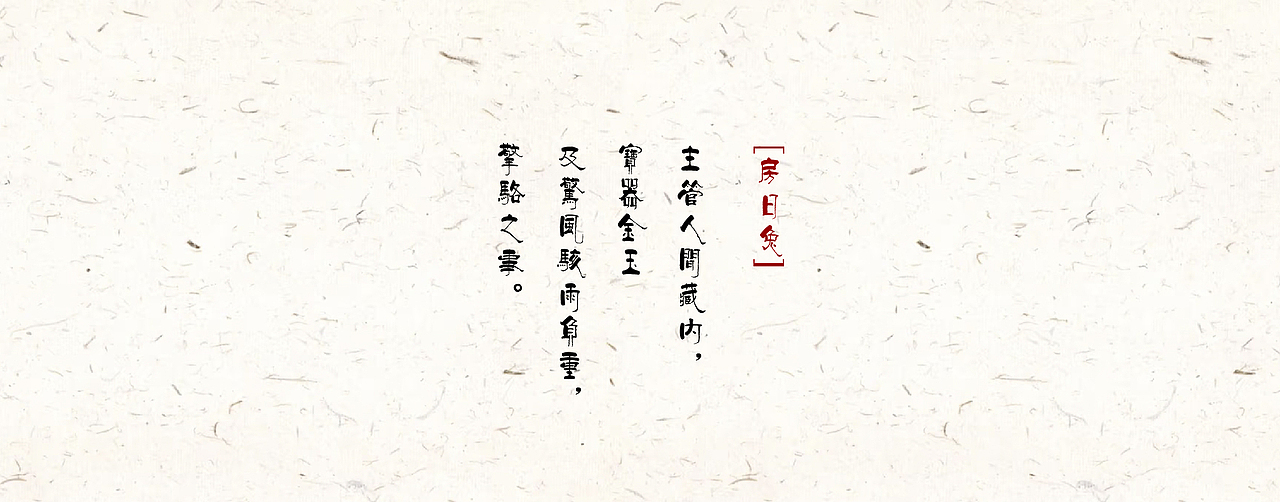 ［房日兔］
主管人間藏内，
寶器金玉
及驚風駭雨負重，
擎駱之事。